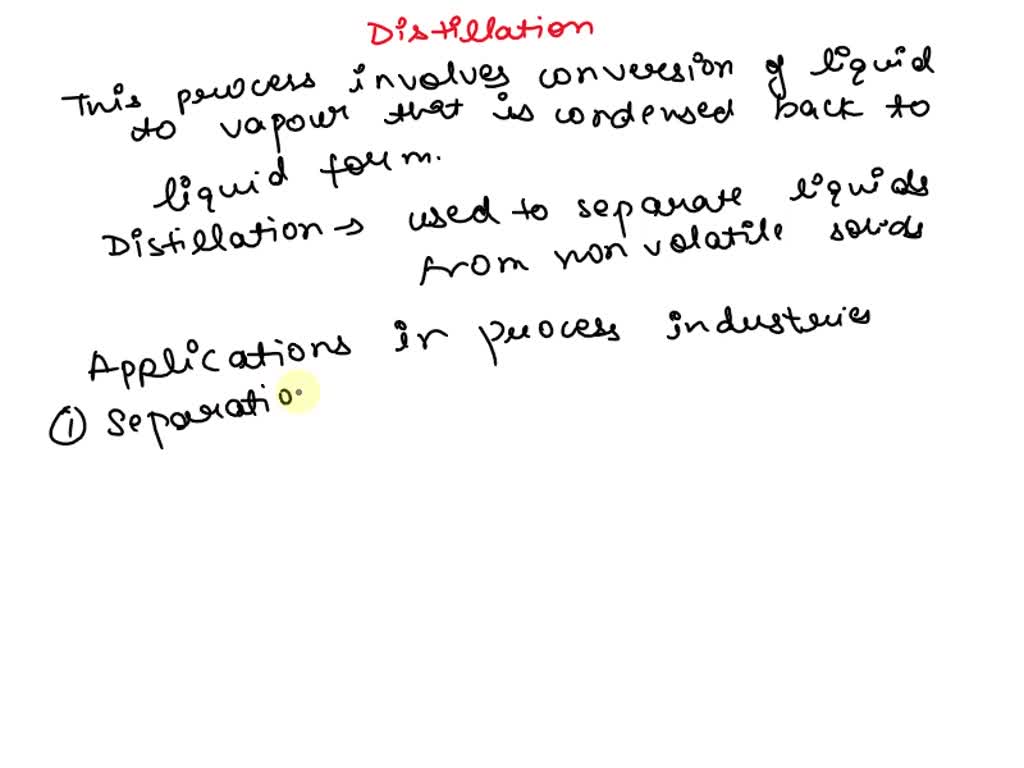 Distillation
This process involves conversion of liquid
to vapour that is condensed back to
liquid form.
Distillation → used to separate liquids
from non volatile solids
Applications in process industries
① Separatio